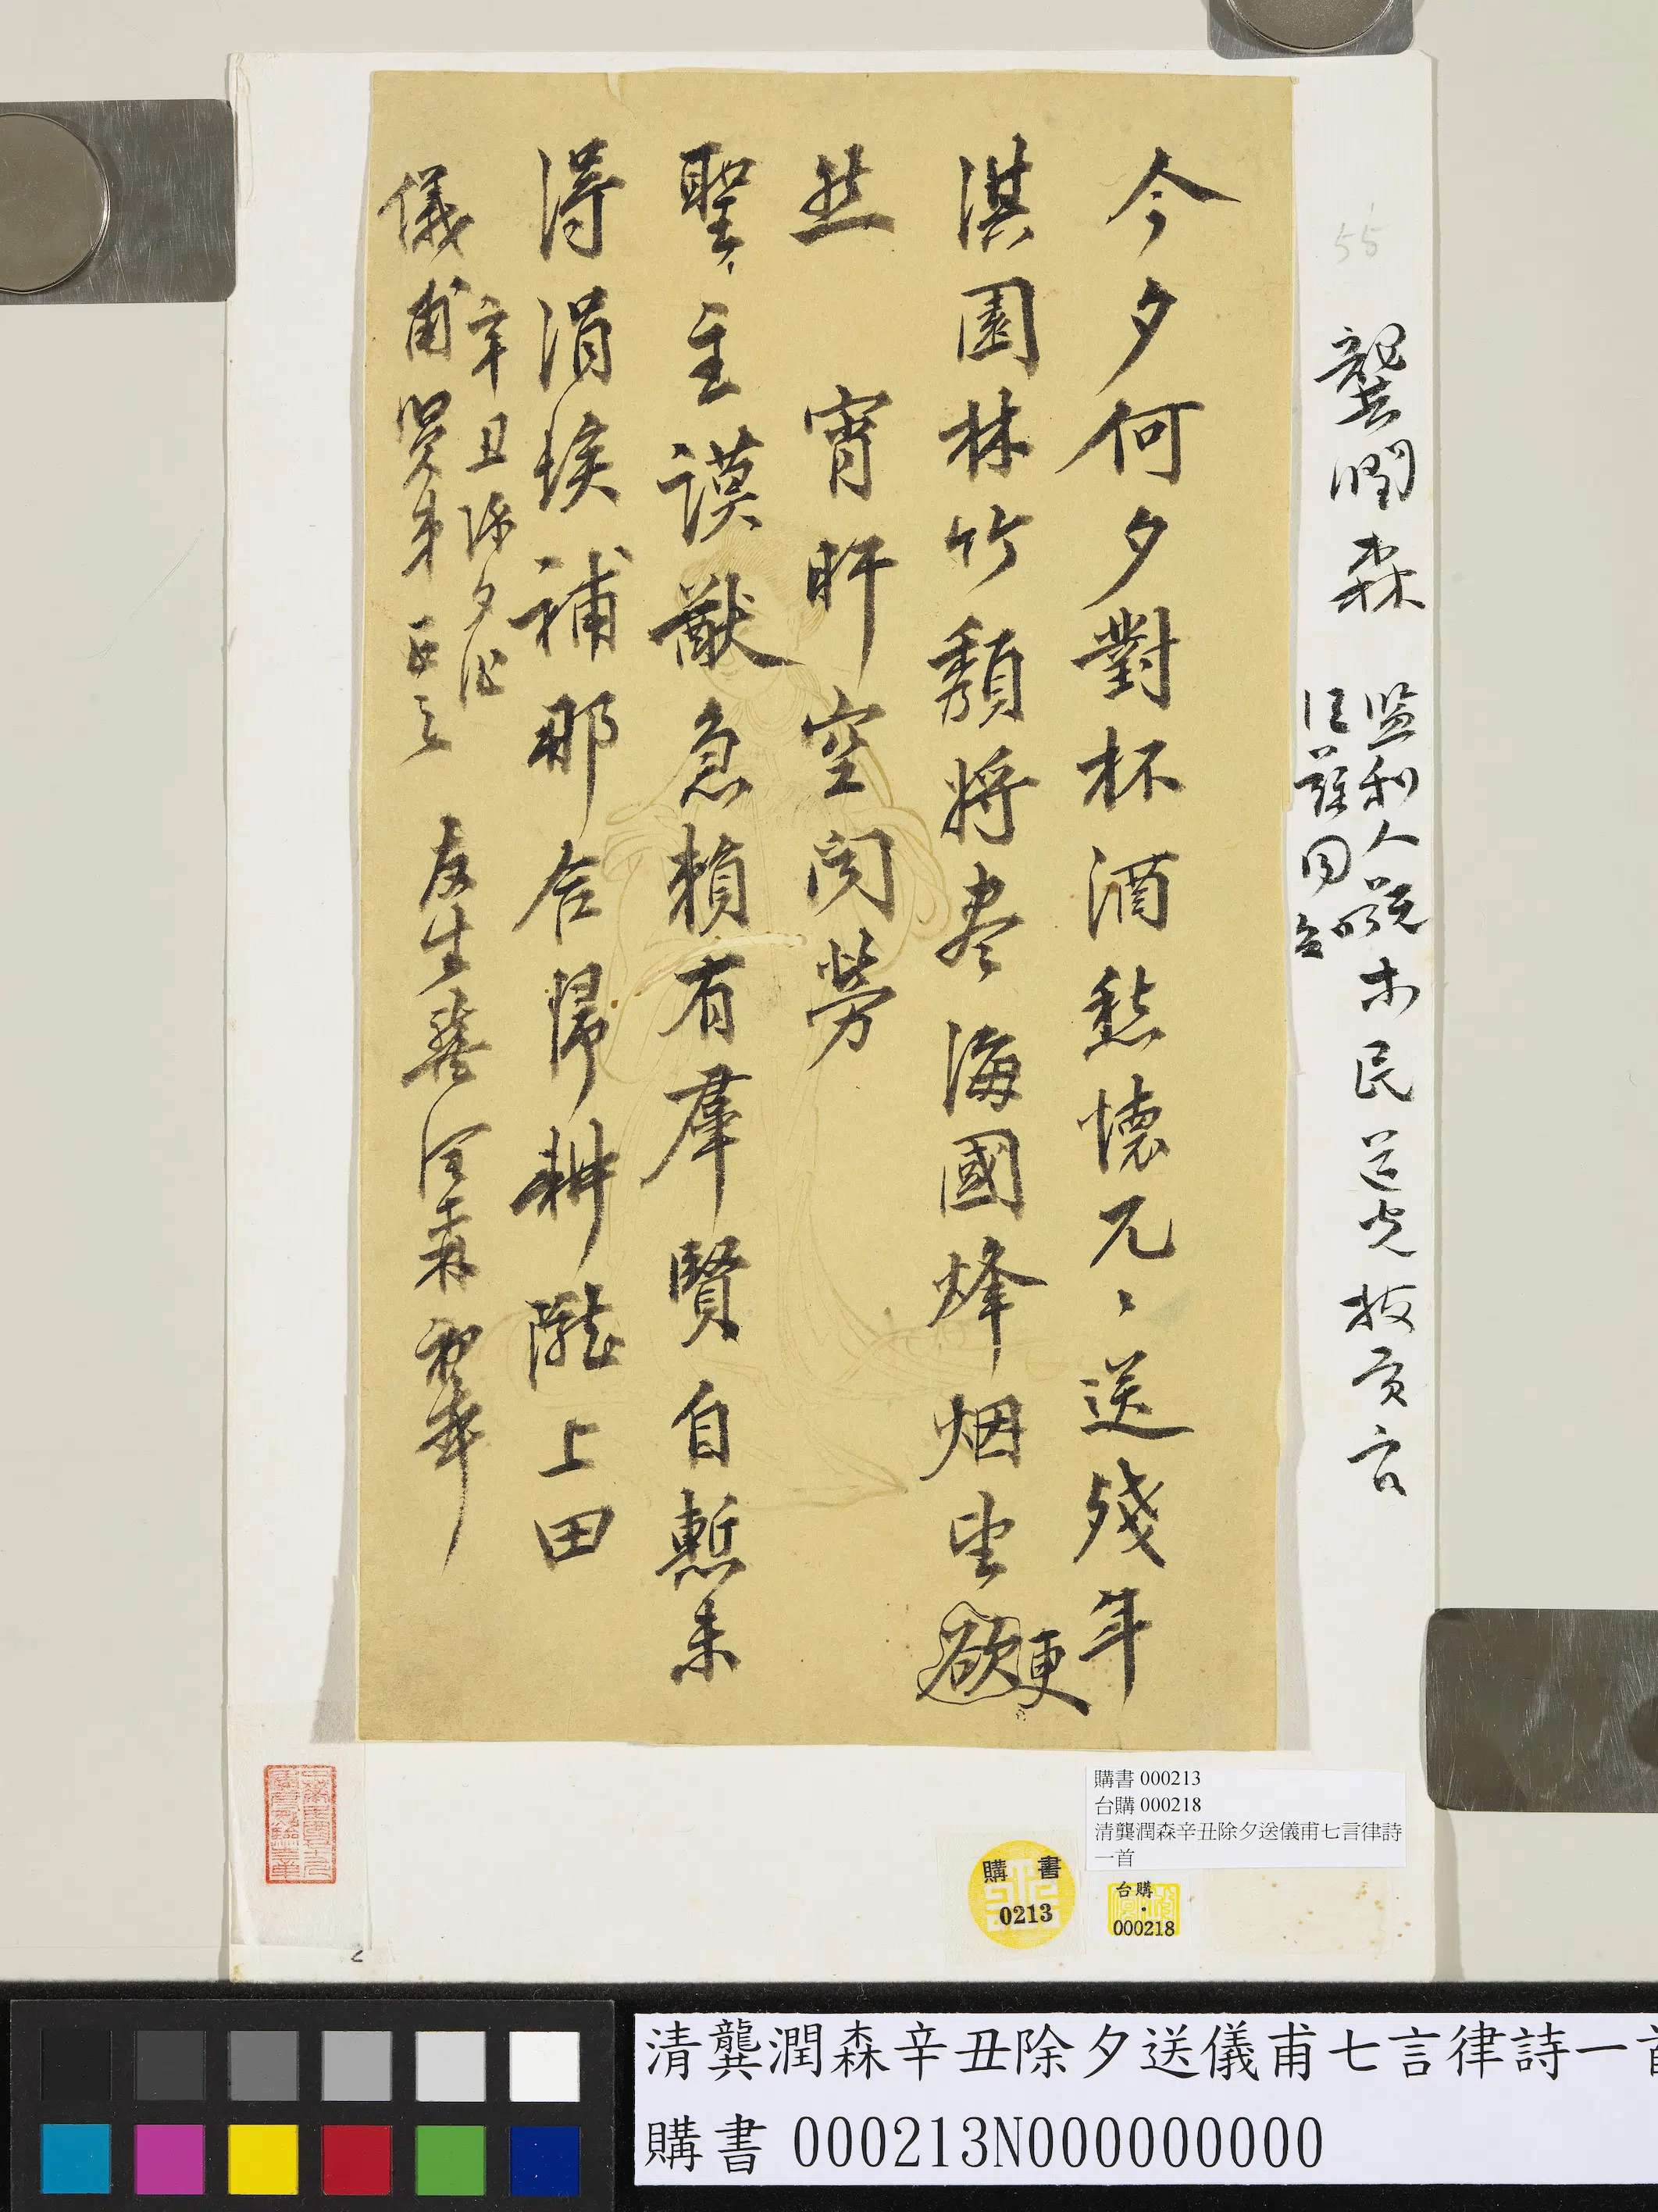 55
龔潤森
監利人號木民道光拔貢官
江蘇同知
今夕何夕對杯酒愁懷兀〻送殘年
淇園林竹頹將盡海國烽烟坐欲更
然宵旰空閔勞
聖主謨猷急賴有羣賢自慙未
得涓埃補那合歸耕隴上田
辛丑除夕作
儀甫賢弟正之
友生龔潤森初草
購書 000213
台購 000218
清龔潤森辛丑除夕送儀甫七言律詩
一首
購書
0213
台購
000218
清龔潤森辛丑除夕送儀甫七言律詩一首
購書 000213N000000000